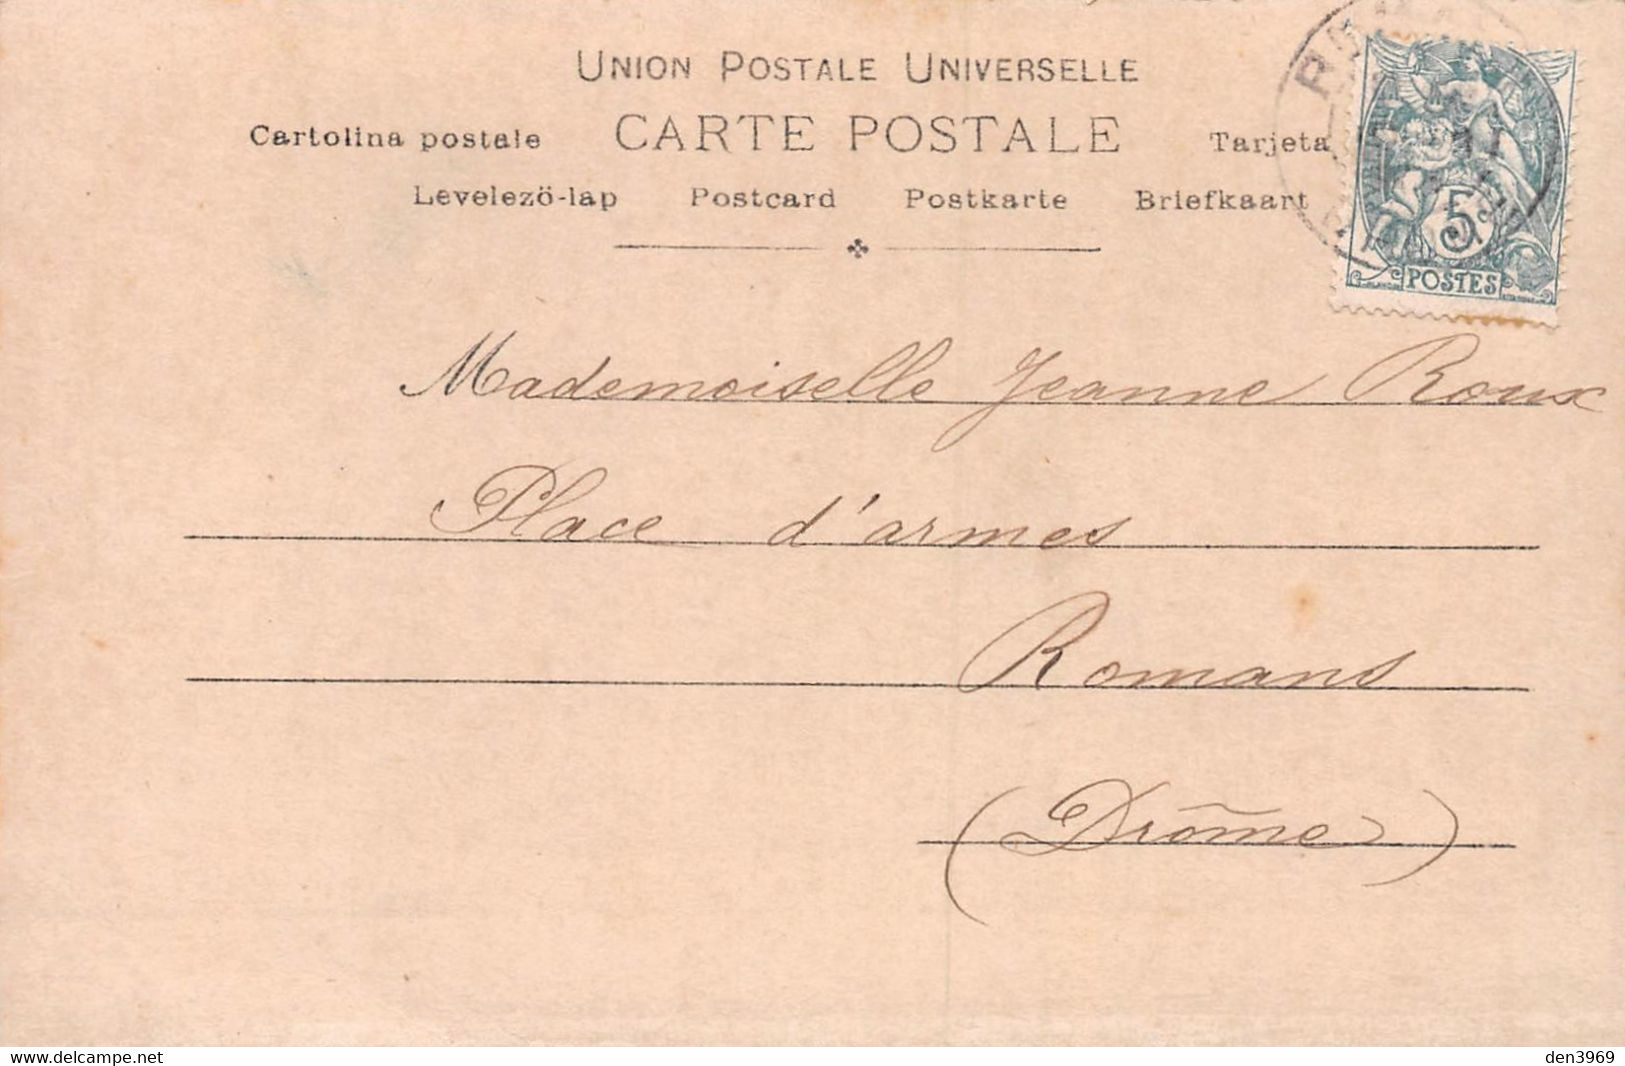 UNION POSTALE UNIVERSELLE
Cartolina postale CARTE POSTALE Tarjeta
Levelezö-lap Postcard Postkarte Briefkaart
5c
POSTES
Mademoiselle Jeanne Roux
Place d'armes
Romans
(Drôme)
www.delcampe.net den3969